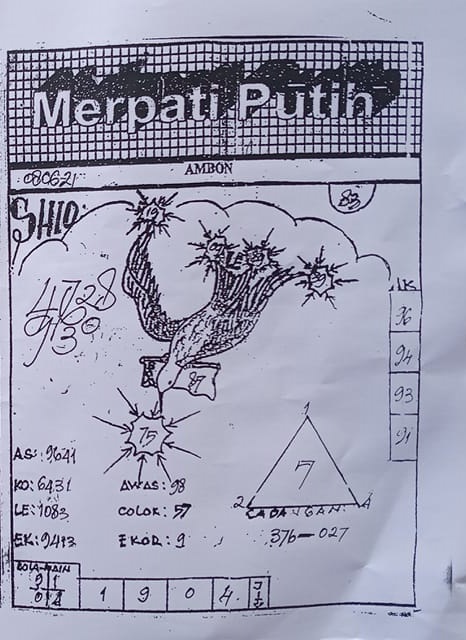 Merpati Putih
AMBON
080621
83
SHIO:
4728
960
93
UK
96
94
93
91
87
75
AS: 9641
KO: 6431
LE: 1083
EK: 9413
AWAS: 98
COLOK: 57
EKOR: 9
1
7
2
4
CADANGAN:
376-027
BOLA MAIN
9 1
0 4
1 9 0 4 JITU